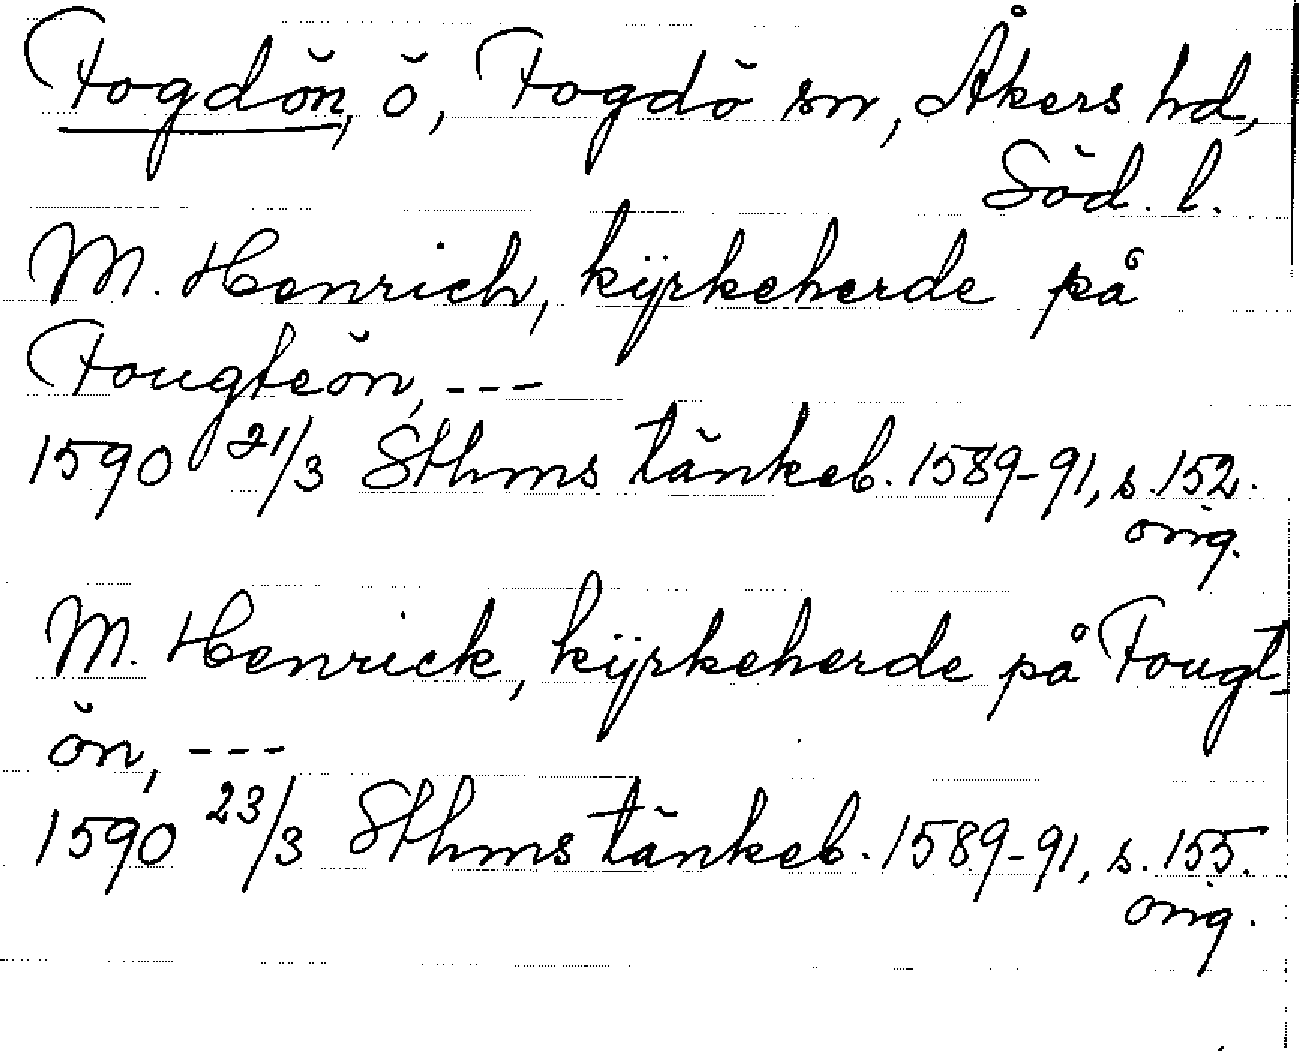 Fogdön, ö, Fogdö sn, Åkers hd,
Söd. l.
M. Henrich, kÿrkeherde på
Fougteön, ---
1590 21/3 Sthms tänkeb. 1589-91, s. 152.
orig.
M. Henrick, kÿrkeherde på Fougt-
ön, ---
1590 23/3 Sthms tänkeb. 1589-91, s. 155.
orig.